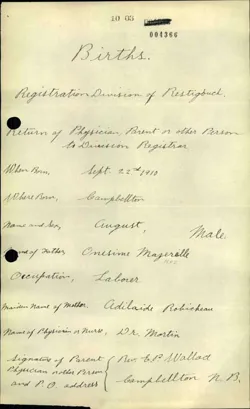 10 03
004366
Births.
Registration Division of Restigouch.
Return of Physician, Parent or other Person
to Division Registrar
When Born, Sept. 22nd 1910
Where Born, Campbellton
Name and Sex, August, Male.
Name of Father, Onesime Mazerolle
Occupation, Laborer
Maiden Name of Mother, Adilaide Robicheau
Name of Physician or Nurse, Dr. Martin
Signature of Parent Rev. E. P. Wallad
Physician or other Person
and P.O. address Campbellton N.B.